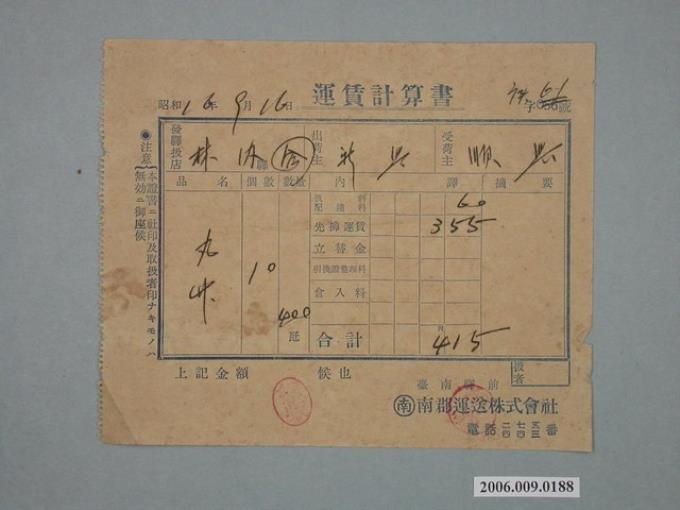 運賃計算書
昭和16年9月16日
字 號
發驛扱店 林內驛 出荷主 新興 受荷主 順興
品名 個數 數量 內譯 摘要
配達料 60
先拂運賃 355
立替金
引換證整理料
倉入料
丸竹 10 400 瓩
合計 円 415
上記金額 候也
扱者
臺南驛前
南 南郡運送株式會社
電話
●注意 本證書ニ社印及取扱者印ナキモノハ
無効ニ御座候
2006.009.0188